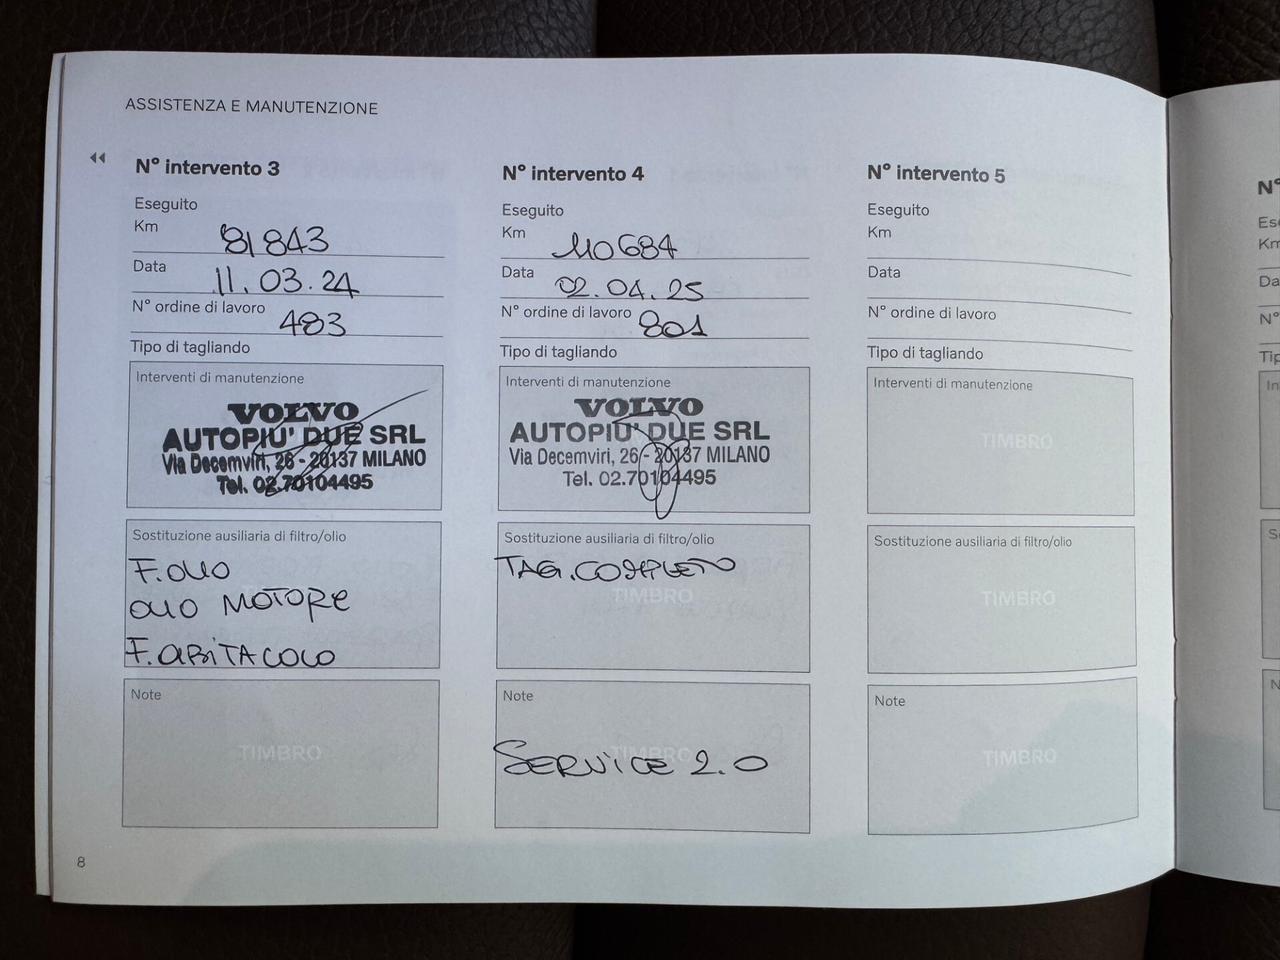 ASSISTENZA E MANUTENZIONE
N° intervento 3
Eseguito
Km 81843
Data 11.03.24
N° ordine di lavoro 483
Tipo di tagliando
Interventi di manutenzione
VOLVO
AUTOPIU' DUE SRL
Via Decemviri, 26 - 20137 MILANO
Tel. 02.70104495
Sostituzione ausiliaria di filtro/olio
F. OLIO
OLIO MOTORE
F. ABITACOLO
Note
TIMBRO
N° intervento 4
Eseguito
Km 110684
Data 02.04.25
N° ordine di lavoro 801
Tipo di tagliando
Interventi di manutenzione
VOLVO
AUTOPIU' DUE SRL
Via Decemviri, 26 - 20137 MILANO
Tel. 02.70104495
Sostituzione ausiliaria di filtro/olio
TAG. COMPLETO
TIMBRO
Note
TIMBRO
SERVICE 2.0
N° intervento 5
Eseguito
Km
Data
N° ordine di lavoro
Tipo di tagliando
Interventi di manutenzione
TIMBRO
Sostituzione ausiliaria di filtro/olio
TIMBRO
Note
TIMBRO
8